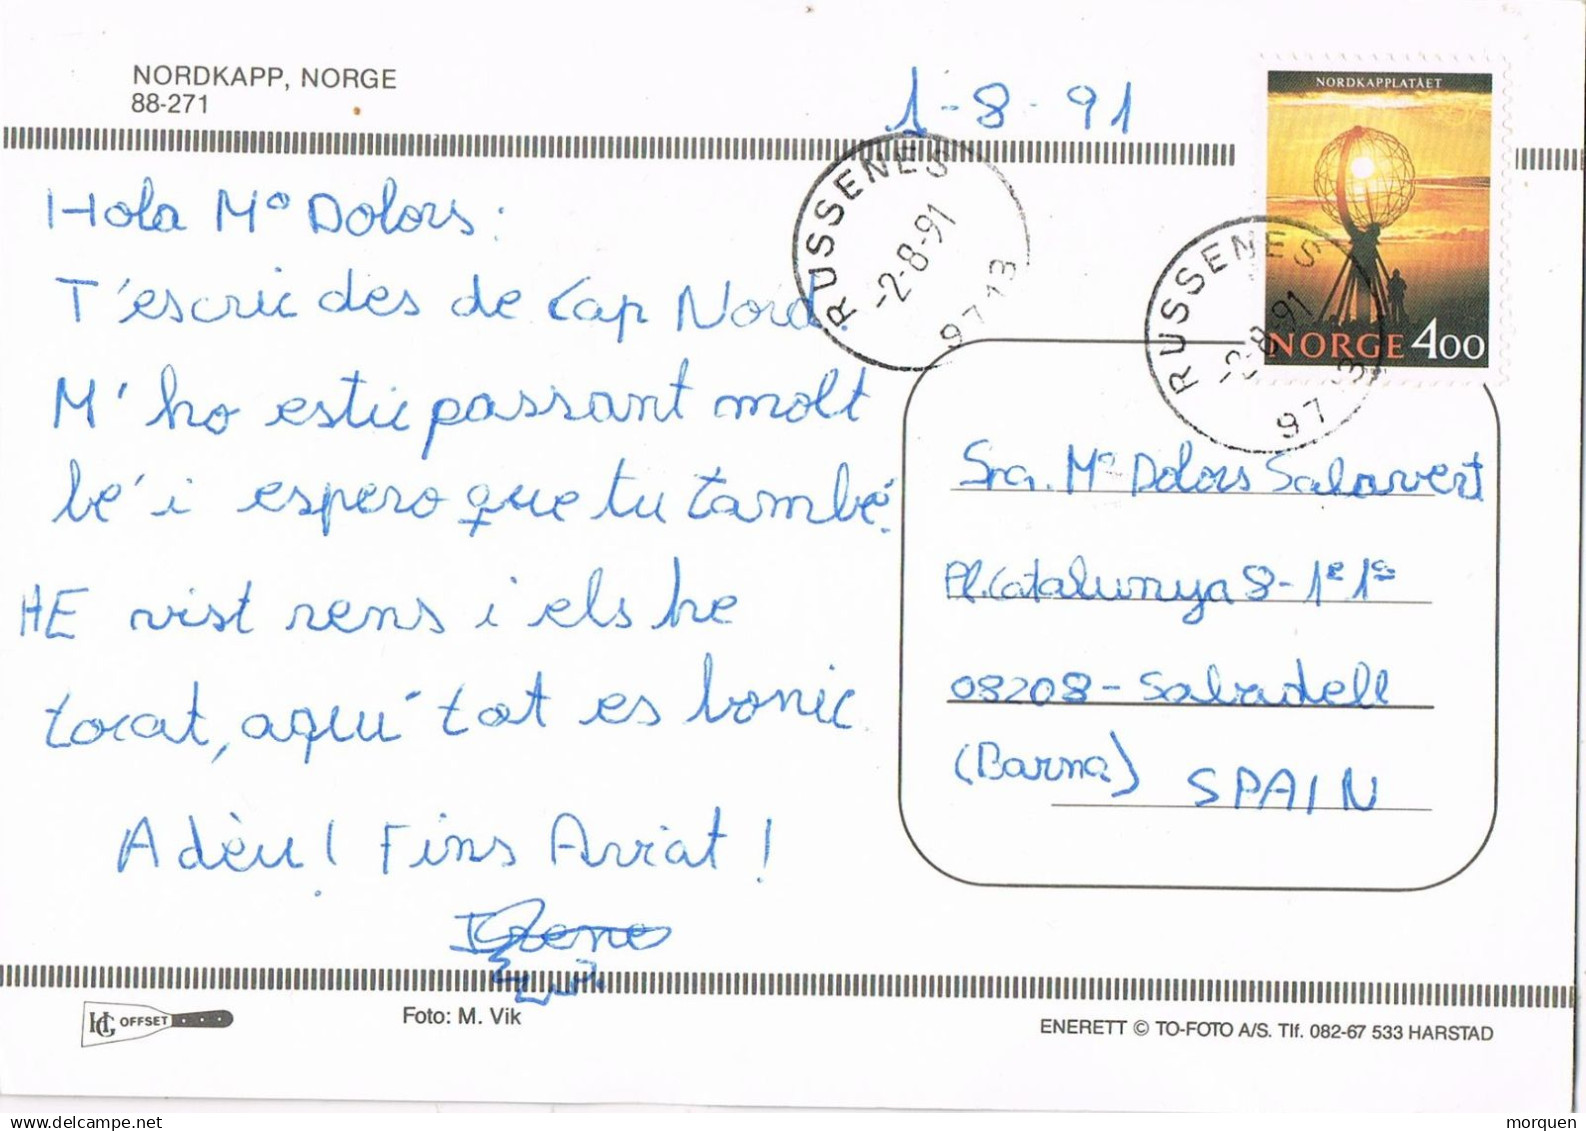 NORDKAPP, NORGE
88-271
1-8-91
NORDKAPPLATÅET
NORGE 400
RUSSENES
-2-8-91
9713
RUSSENES
-2-8-91
9713
Hola Mº Dolors:
T'escric des de Cap Nord.
M'ho estic passant molt
bé i espero que tu també.
HE vist rens i els he
tocat, aquí tot es bonic.
Adèu! Fins Aviat!
Irene
Sra. Mª Dolors Salavert
Pl. Catalunya 8-1º 1ª
08208-Sabadell
(Barna) SPAIN
HG OFFSET
Foto: M. Vik
ENERETT © TO-FOTO A/S. Tlf. 082-67 533 HARSTAD
morquen